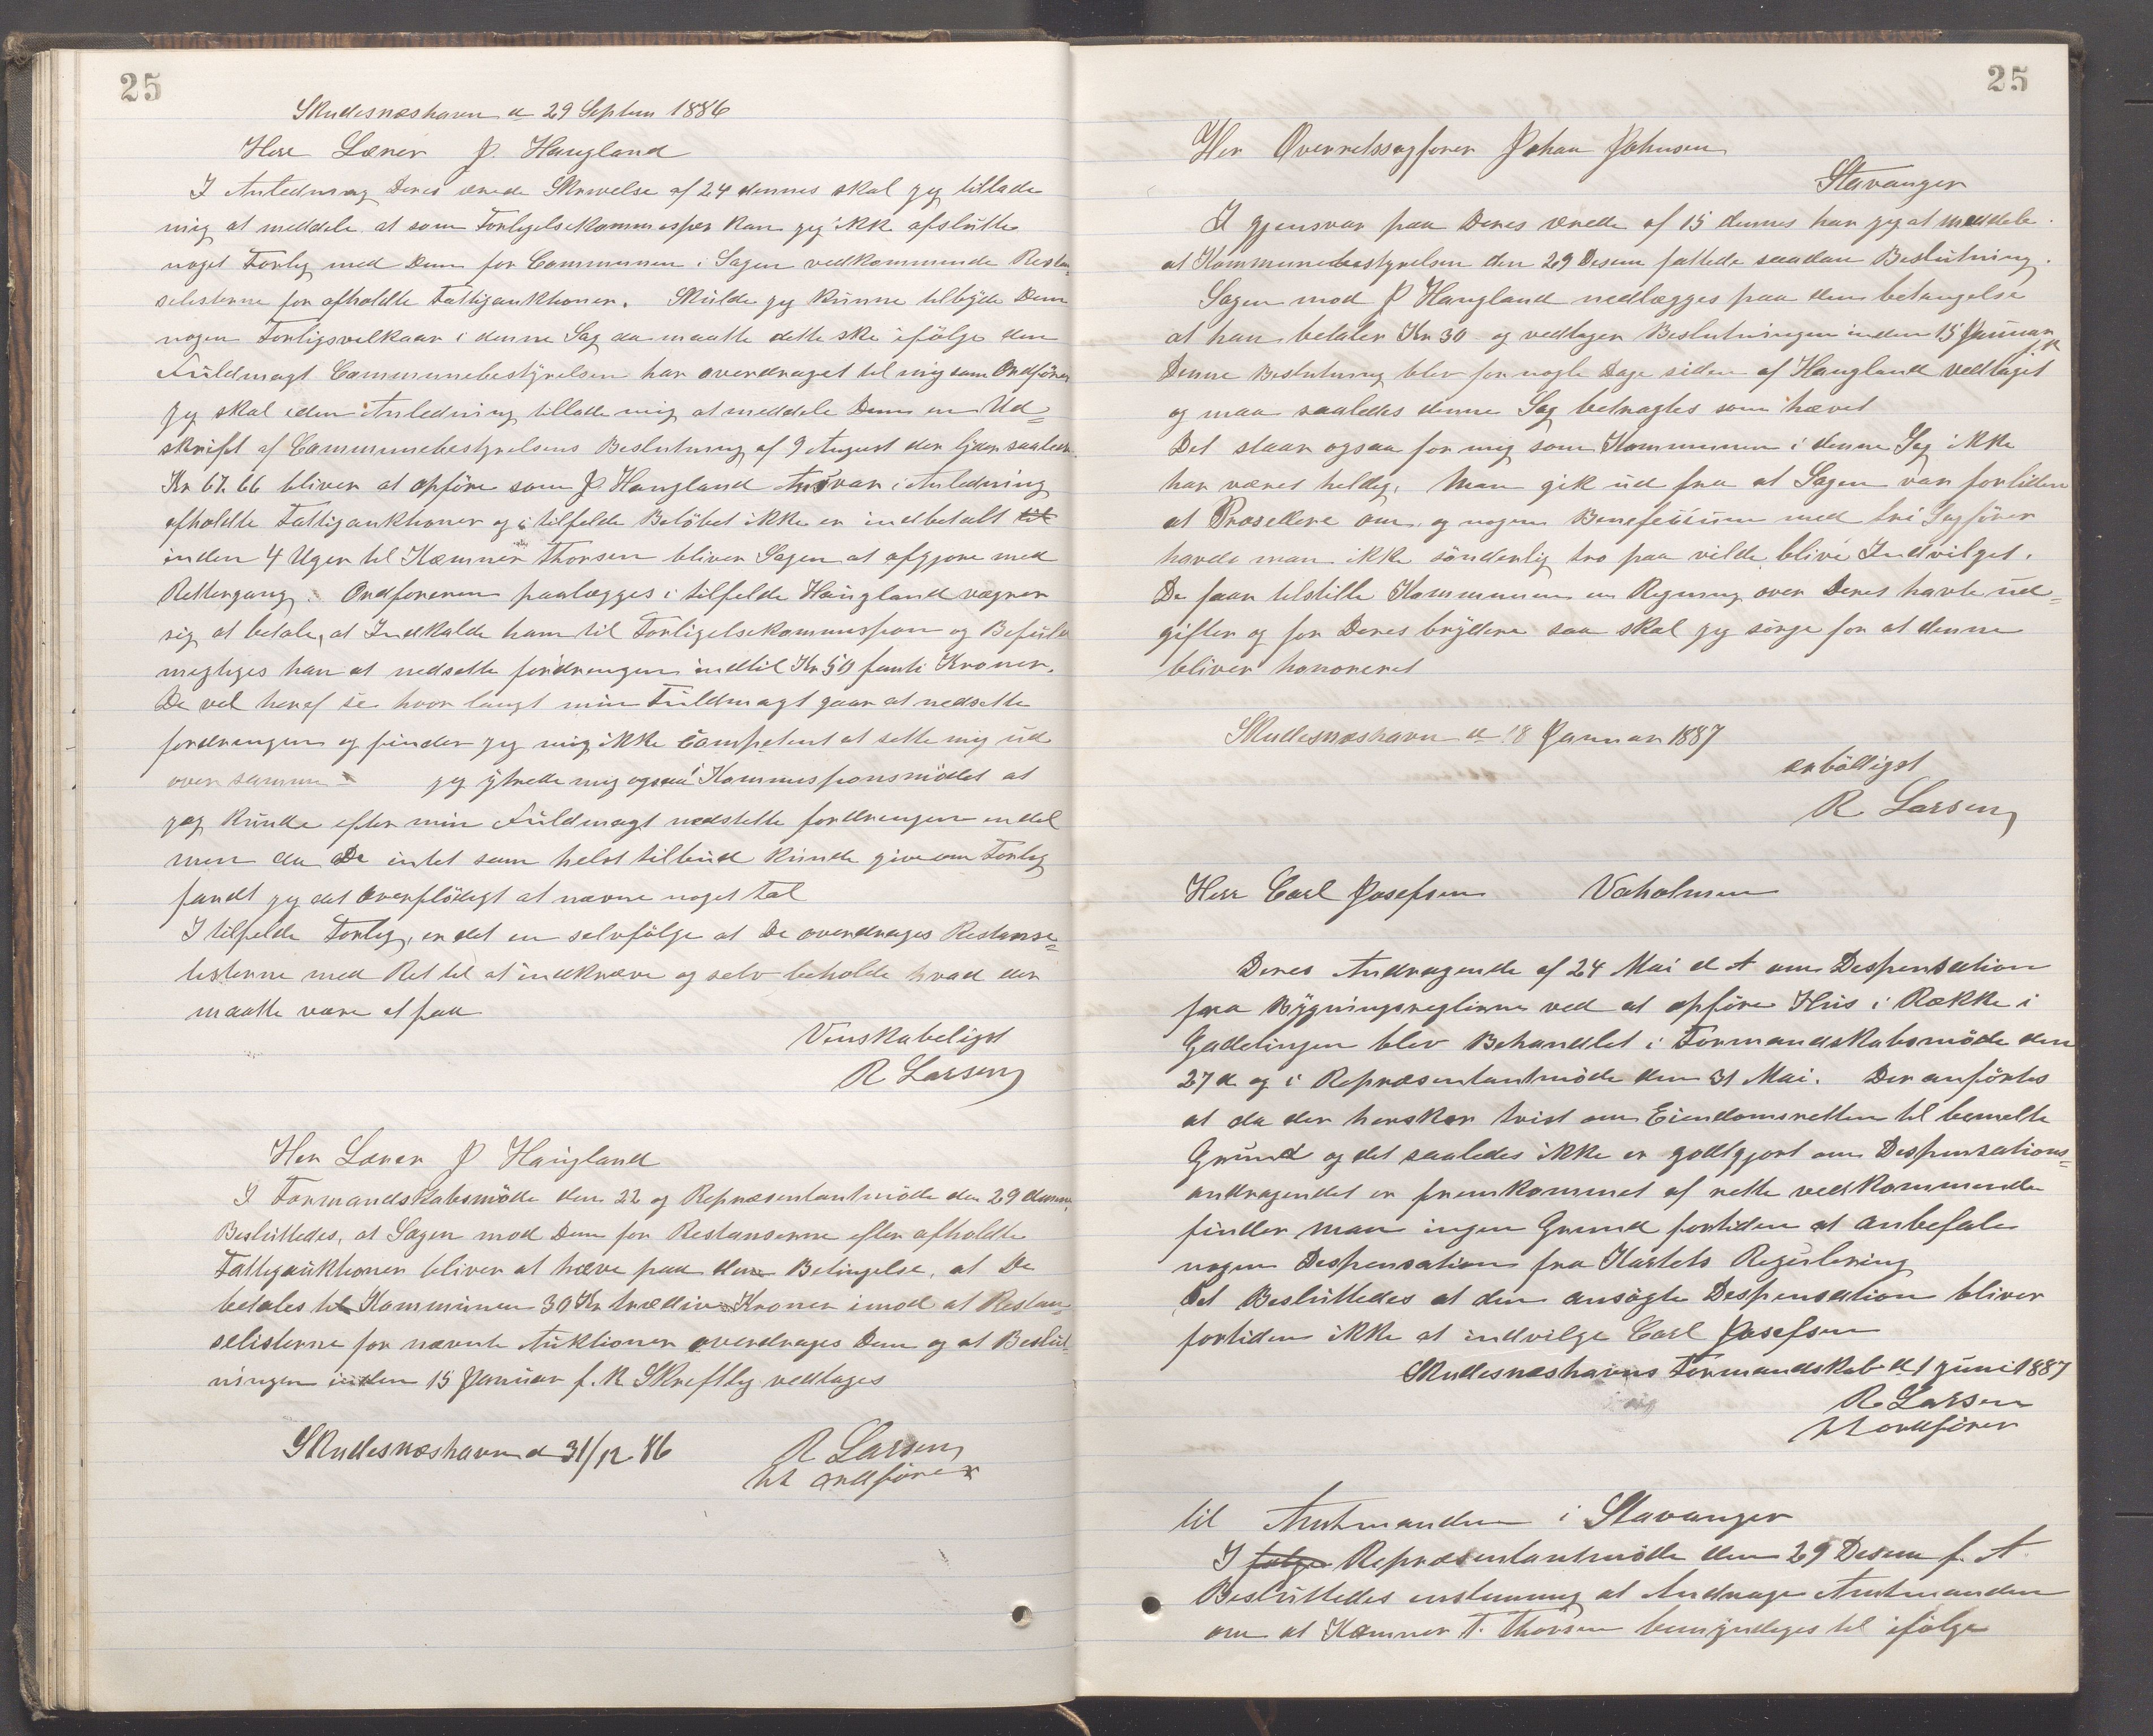 25
Skudesnæshavn d 29 Septem 1886
Herr Lærer P. Haugland
I Anledning Deres ærede Skrivelse af 24 dennes skal jeg tillade
mig at meddele at som Forligelsekommisær kan jeg ikke afslutte
noget Forlig med Dem for Communen i Sagen vedkommende Restan-
selisterne for afholdte Fattigauktioner. Skulde jeg kunne tilbyde Dem
nogen Forligsvilkaar i denne Sag da maatte dette ske ifølge den
Fuldmagt Communebestyrelsen har overdraget til mig som Ordfører
Jeg skal i den Anledning tillade mig at meddele Dem en Ud=
skrift af Communebestyrelsens Beslutning af 9 August der lyder saaledes
Kr 67.66 bliver at opføre som P Haugland Ansvar i Anledning
afholdte Fattigauktioner og i tilfelde Beløbet ikke er indbetalt til
inden 4 Uger til Kæmner Thorsen bliver Sagen at afgjøre med
Rettergang. Ordføreren paalægges i tilfelde Haugland vægrer
sig at betale, at Indkalde ham til Forligelsekommission og Befuld
megtiges han at nedsette fordringen indtil Kr 50 femti Kroner.
De vil heraf se hvor langt min Fuldmagt gaar at nedsette
fordringen og finder jeg mig ikke Competent at sette mig ud
over samme - jeg ytrede mig ogsaa i Kommissionsmødet at
jeg kunde efter min Fuldmagt nedsette fordringen endel
men da De intet som helst tilbud kunde give om Forlig
fandt jeg det overflødigt at nævne noget tal
I tilfelde Forlig, er det en selvfølge at De overdrages Restanse=
listerne med Ret til at indkræve og selv beholde hvad der
maatte være at faa
Venskabeligst
R Larsen
Herr Lærer P Haugland
I Formandskabsmøde den 22 og Repræsentantmøde den 29 dennes,
Besluttedes, at Sagen mod Dem for Restanserne efter afholdte
Fattigauktioner bliver at hæve paa den Betingelse, at De
betales til Kommunen 30 Kr trædive Kroner imod at Restan=
selisterne for nævnte Auktioner overdrages Dem og at Beslut=
ningen inden 15 Januar f. K Skriftlig vedtages
Skudesnæshavn d 31/12 86
R Larsen
ht ordfører
25
Herr Overretssagfører Johan Johnsen
Stavanger
I gjensvar paa Deres ærede af 15 dennes har jeg at meddele
at Kommunebestyrelsen den 29 Desem fattede saadan Beslutning.
Sagen mod P Haugland nedlægges paa den betingelse
at han betaler Kr 30 og vedtager Beslutningen inden 15 Januar
f K
Denne Beslutning blev for nogle Dage siden af Haugland vedtaget
og maa saaledes denne Sag betragtes som hævet
Det staar ogsaa for mig som Kommunen i denne Sag ikke
har været heldig. Man gik ud fra at Sagen var for liden
at Prosedere om, og nogen Benefisium med fri Sagfører
havde man ikke sønderlig tro paa vilde blive Indvilget.
De faar tilstille Kommunen en Regning over Deres havte ud=
gifter og for Deres bryderi saa skal jeg sørge for at denne
bliver honoreret
Skudesnæshavn d 18 Januar 1887
ærbødigst
R Larsen
Herr Carl Josefsen Vaholmen
Deres Andragende af 24 Mai d A om Despensation
fra Bygningsreglerne ved at opføre Hus i Række i
Gadelinjen blev Behandlet i Formandskabsmøde den
27 d og i Repræsentantmøde den 31 Mai. Der anførtes
at da der hersker tvist om Eiendomsretten til bemelte
Grund og det saaledes ikke er godtgjort om Despensations=
andragendet er fremkommet af rette vedkommende
finder man ingen Grund fortiden at anbefale
nogen Despensation fra Kartets Regulering
Det Besluttedes at den ansøgte Despensation bliver
fortiden ikke at indvilge Carl Josefsen
Skudesnæshavns Formandskab d 1 juni 1887
R Larsen
ht ordfører
til Amtmanden i Stavanger
I følge Repræsentantmøde den 29 Desem f. A.
Besluttedes enstemmig at Andrage Amtmanden
om at Kæmner T. Thorsen bemyndiges til ifølge